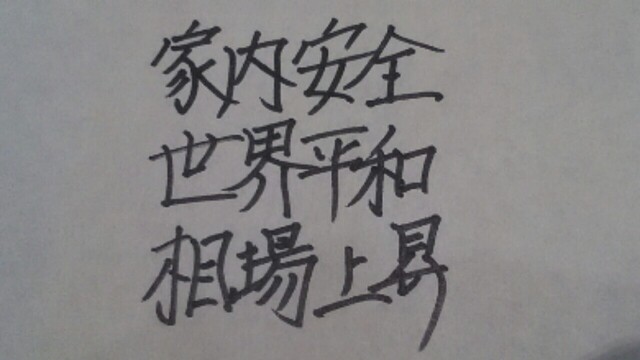 家内安全
世界平和
相場上昇